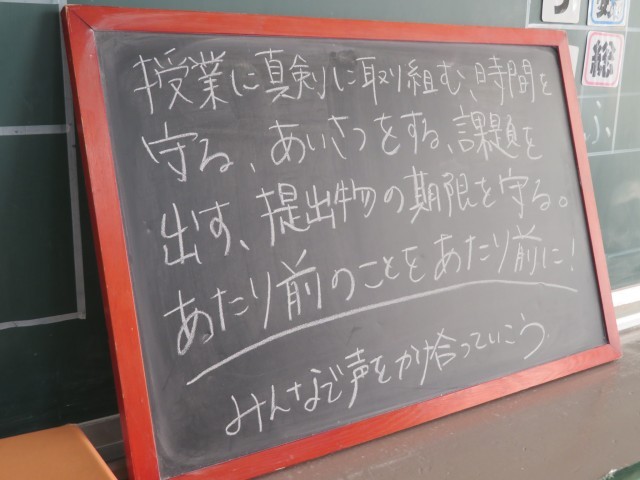 授業に真剣に取り組む、時間を
守る、あいさつをする、課題を
出す、提出物の期限を守る。
あたり前のことをあたり前に!
みんなで声をかけ拾っていこう
総